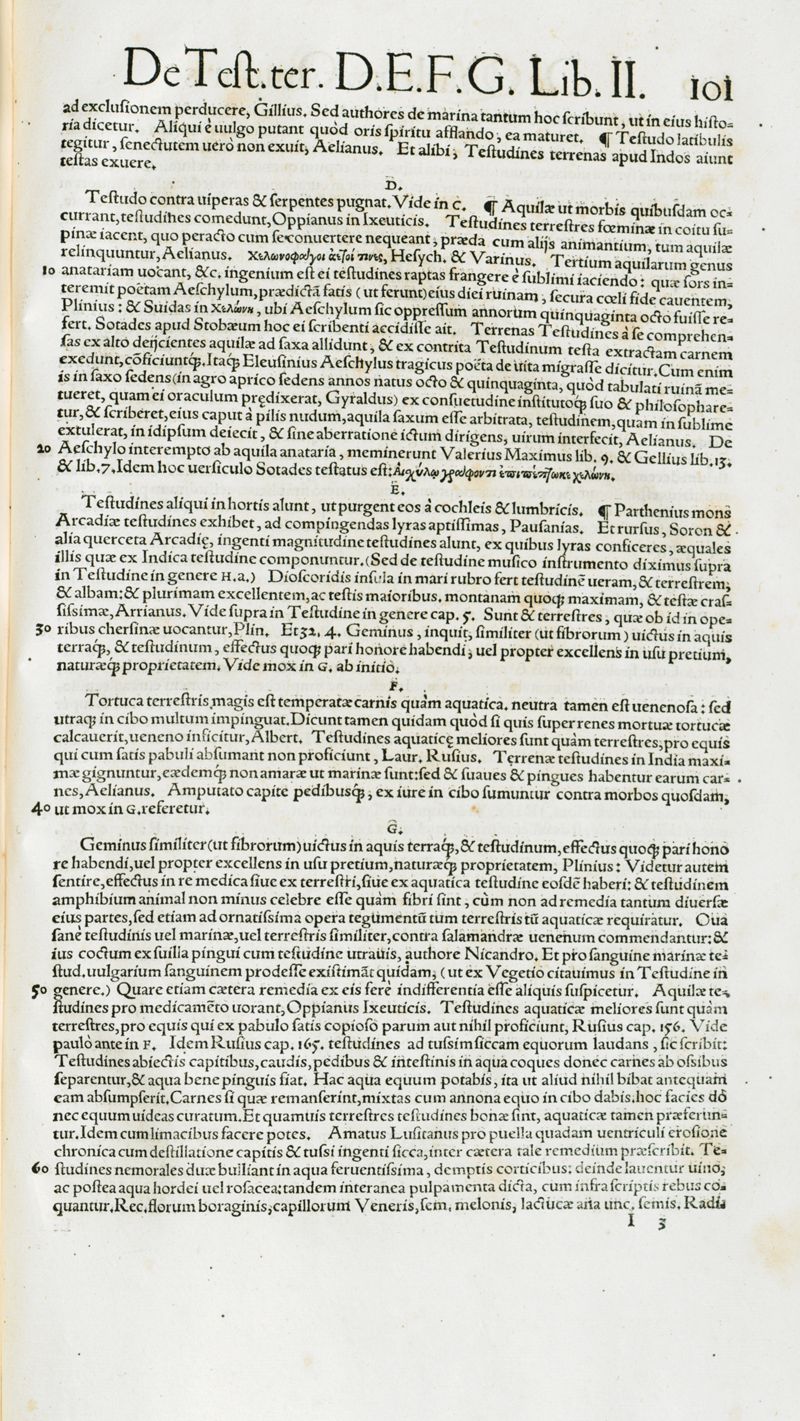 De Test.ter. D.E.F.G. Lib. II. 101
ad exclusionem perducere, Gillius. Sed authores de marina tantum hoc scribunt, ut in eius histo-
ria dicetur. Aliqui è uulgo putant quòd oris spiritu afflando, ea maturet. ¶ Testudo latibulis
tegitur, senectutem uero non exuit, Aelianus. Et alibi, Testudines terrenas apud Indos aiunt
testas exuere.
D.
Testudo contra uiperas & serpentes pugnat. Vide in c. ¶ Aquilæ ut morbis quibusdam oc-
currant, testudines comedunt, Oppianus in Ixeuticis. Testudines terrestres fœminæ in coitu su-
pinæ iacent, quo peracto cum se conuertere nequeant, præda cum alijs animantium, tum aquilæ
relinquuntur, Aelianus. Χελωνοφάγοι ἀετοί τινες, Hesych. & Varinus. Tertium aquilarum genus
10 anatariam uocant, &c. ingenium est ei testudines raptas frangere è sublimi iaciendo: quæ sors in-
teremit poëtam Aeschylum, prædictã fatis (ut ferunt) eius diei ruinam, secura cœli fide cauentem,
Plinius: & Suidas in Χελώνη, ubi Aeschylum sic oppressum annorum quinquaginta octo fuisse re-
fert. Sotades apud Stobæum hoc ei scribenti accidisse ait. Terrenas Testudines à se comprehen-
sas ex alto deijcientes aquilæ ad saxa allidunt, & ex contrita Testudinum testa extractam carnem
exedunt, cõficiuntq́. Itaq́ Eleusinius Aeschylus tragicus poëta de uita migrasse dicitur. Cum enim
is in saxo sedens (in agro aprico sedens annos natus octo & quinquaginta, quòd tabulati ruinã me-
tueret, quam ei oraculum prędixerat, Gyraldus) ex consuetudine institutoq́ suo & philosophare-
tur, & scriberet, eius caput à pilis nudum, aquila saxum esse arbitrata, testudinem, quam in sublime
extulerat, in idipsum deiecit, & sine aberratione ictum dirigens, uirum interfecit, Aelianus. De
20 Aeschylo interempto ab aquila anataria, meminerunt Valerius Maximus lib. 9. & Gellius lib. 13.
& lib. 7. Idem hoc uersiculo Sotades testatus est: Αἰσχύλῳ γράφοντι ἐπιπέπτωκε χελώνη.
E.
Testudines aliqui in hortis alunt, ut purgent eos à cochleis & lumbricis. ¶ Parthenius mons
Arcadiæ testudines exhibet, ad compingendas lyras aptissimas, Pausanias. Et rursus, Soron &
alia querceta Arcadię, ingenti magnitudine testudines alunt, ex quibus lyras conficeres, æquales
illis quæ ex Indica testudine componuntur. (Sed de testudine musico instrumento diximus supra
in Testudine in genere H. a.) Dioscoridis insula in mari rubro fert testudinẽ ueram, & terrestrem,
& albam: & plurimam excellentem, ac testis maioribus. montanam quoq́ maximam, & testæ cras-
sissimæ, Arrianus. Vide supra in Testudine in genere cap. 5. Sunt & terrestres, quæ ob id in ope-
30 ribus chersinæ uocantur, Plin. Et 32. 4. Geminus, inquit, similiter (ut fibrorum) uictus in aquis
terraq́, & testudinum, effectus quoq́ pari honore habendi, uel propter excellens in usu pretium,
naturæq́ proprietatem. Vide mox in G. ab initio.
F.
Tortuca terrestris magis est temperatæ carnis quàm aquatica. neutra tamen est uenenosa: sed
utraq́ in cibo multum impinguat. Dicunt tamen quidam quòd si quis super renes mortuæ tortucæ
calcauerit, ueneno inficitur, Albert. Testudines aquaticę meliores sunt quàm terrestres, pro equis
qui cum satis pabuli absumant non proficiunt, Laur. Rusius. Terrenæ testudines in India maxi-
mæ gignuntur, eædemq́ non amaræ ut marinæ sunt: sed & suaues & pingues habentur earum car-
nes, Aelianus. Amputato capite pedibusq́, ex iure in cibo sumuntur contra morbos quosdam,
40 ut mox in G. referetur.
G.
Geminus similiter (ut fibrorum) uictus in aquis terraq́, & testudinum, effectus quoq́ pari hono
re habendi, uel propter excellens in usu pretium, naturæq́ proprietatem, Plinius: Videtur autem
sentire, effectus in re medica siue ex terrestri, siue ex aquatica testudine eosdẽ haberi: & testudinem
amphibium animal non minus celebre esse quàm fibri sint, cùm non ad remedia tantum diuersæ
eius partes, sed etiam ad ornatissima opera tegumentũ tum terrestris tũ aquaticæ requiratur. Oua
sanè testudinis uel marinæ, uel terrestris similiter, contra salamandræ uenenum commendantur: &
ius coctum ex suilla pingui cum testudine utrauis, authore Nicandro. Et pro sanguine marinæ te-
stud. uulgarium sanguinem prodesse existimãt quidam, (ut ex Vegetio citauimus in Testudine in
50 genere.) Quare etiam cætera remedia ex eis ferè indifferentia esse aliquis suspicetur. Aquilæ te-
studines pro medicamẽto uorant, Oppianus Ixeuticis. Testudines aquaticæ meliores sunt quàm
terrestres, pro equis qui ex pabulo satis copioso parum aut nihil proficiunt, Rusius cap. 156. Vide
paulò ante in F. Idem Rusius cap. 165. testudines ad tussim siccam equorum laudans, sic scribit:
Testudines abiectis capitibus, caudis, pedibus & intestinis in aqua coques donec carnes ab ossibus
separentur, & aqua bene pinguis fiat. Hac aqua equum potabis, ita ut aliud nihil bibat antequam
eam absumpserit. Carnes si quæ remanserint, mixtas cum annona equo in cibo dabis. hoc facies dõ
nec equum uideas curatum. Et quamuis terrestres testudines bonæ sint, aquaticæ tamen præferun-
tur. Idem cum limacibus facere potes. Amatus Lusitanus pro puella quadam uentriculi erosione
chronica cum destillatione capitis & tussi ingenti sicca, inter cætera tale remedium præscribit. Te-
60 studines nemorales duæ bulliant in aqua feruentissima, demptis corticibus: deinde lauentur uino,
ac postea aqua hordei uel rosacea: tandem interanea pulpamenta dicta, cum infra scriptis rebus co-
quantur. Rec. florum boraginis, capillorum Veneris, sem. melonis, lactucæ ana unc. semis. Radi-
I 3